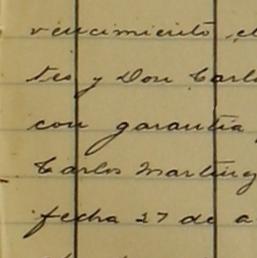 vencimiento, el
tes y Don Carlo
con garantia
Carlos Marting
fecha 27 de a